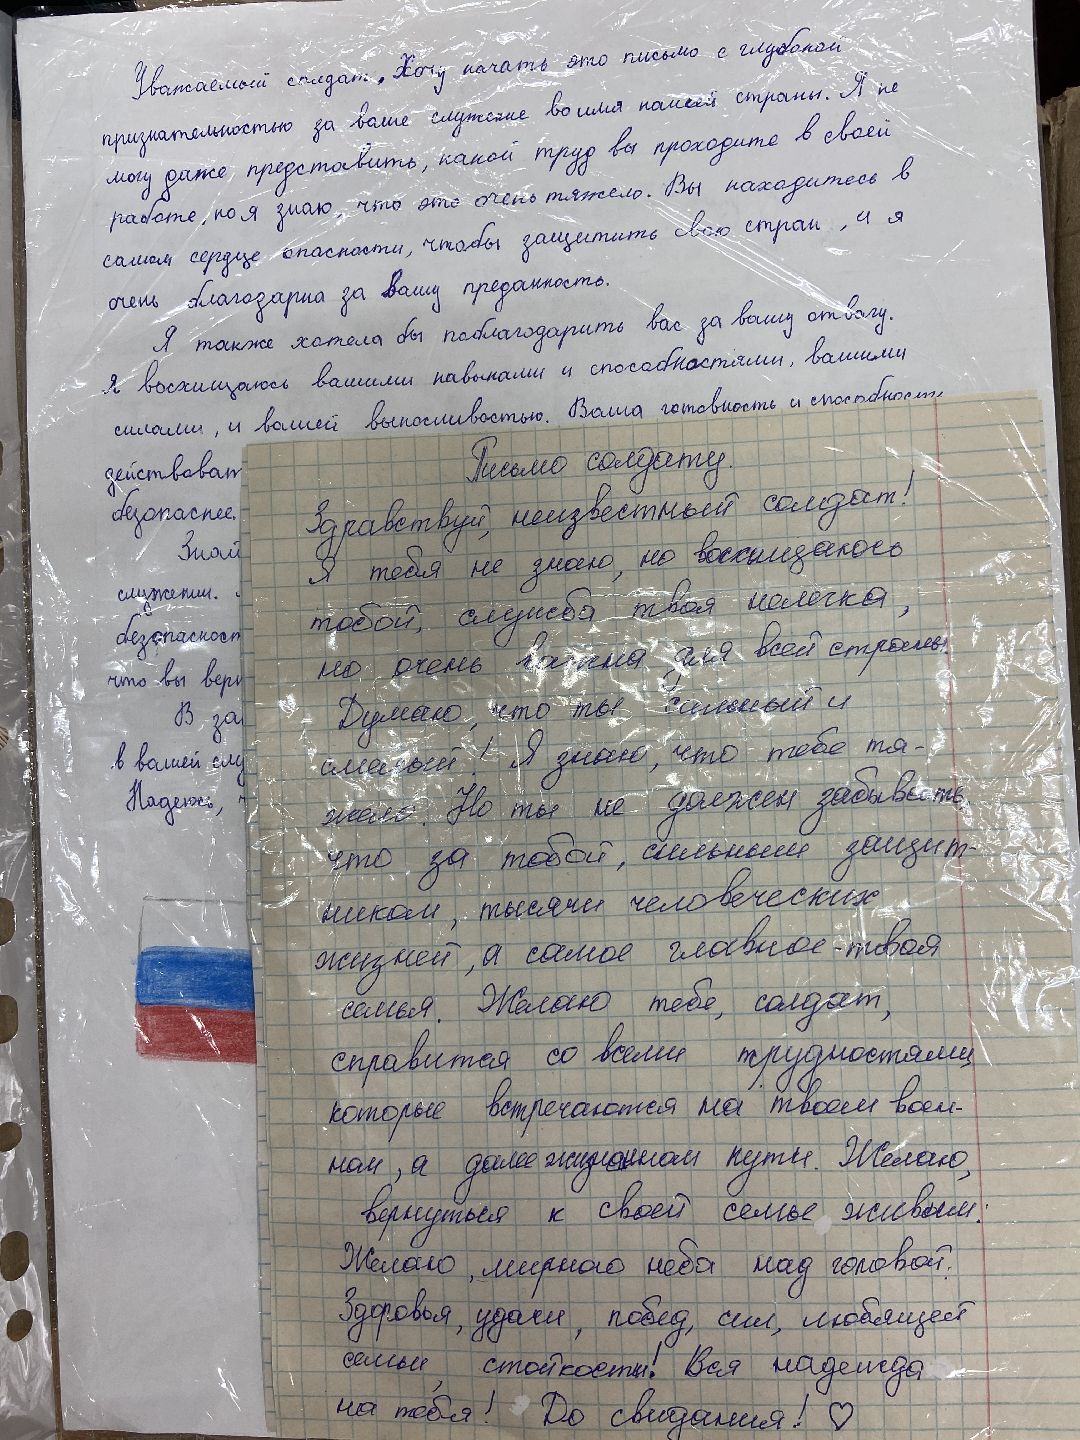 Уважаемый солдат, Хочу начать это письмо с глубокой
признательностью за ваше служение во имя нашей страны. Я не
могу даже представить, какой труд вы проходите в своей
работе, но я знаю, что это очень тяжело. Вы находитесь в
самом сердце опасности, чтобы защитить свою стран, и я
очень благодарна за Вашу преданность.
Я также хотела бы поблагодарить вас за вашу отвагу.
Я восхищаюсь вашими навыками и способностями, вашими
силами, и вашей выносливостью. Ваша готовность и способность
действоват
безопаснее.
Знай
служении.
безопасност
что вы верн
В за
в вашей слу
Надеюсь,
Письмо солдату.
Здравствуй, неизвестный солдат!
Я тебя не знаю, но восхищаюсь
тобой, служба твоя нелегка,
но очень важна для всей страны
Думаю, что ты сильный и
смелый! Я знаю, что тебе тя-
жело. Но ты не должен забывать,
что за тобой, сильным защит-
ником, тысячи человеческих
жизней, а самое главное - твоя
семья. Желаю тебе, солдат,
справится со всеми трудностями
которые встречаются на твоем воен-
ном, а далее жизненном пути. Желаю,
вернуться к своей семье живым.
Желаю, мирного неба над головой.
Здоровья, удачи, побед, сил, любящей
семьи, стойкости! Вся надежда
на тебя! До свидания! ♡